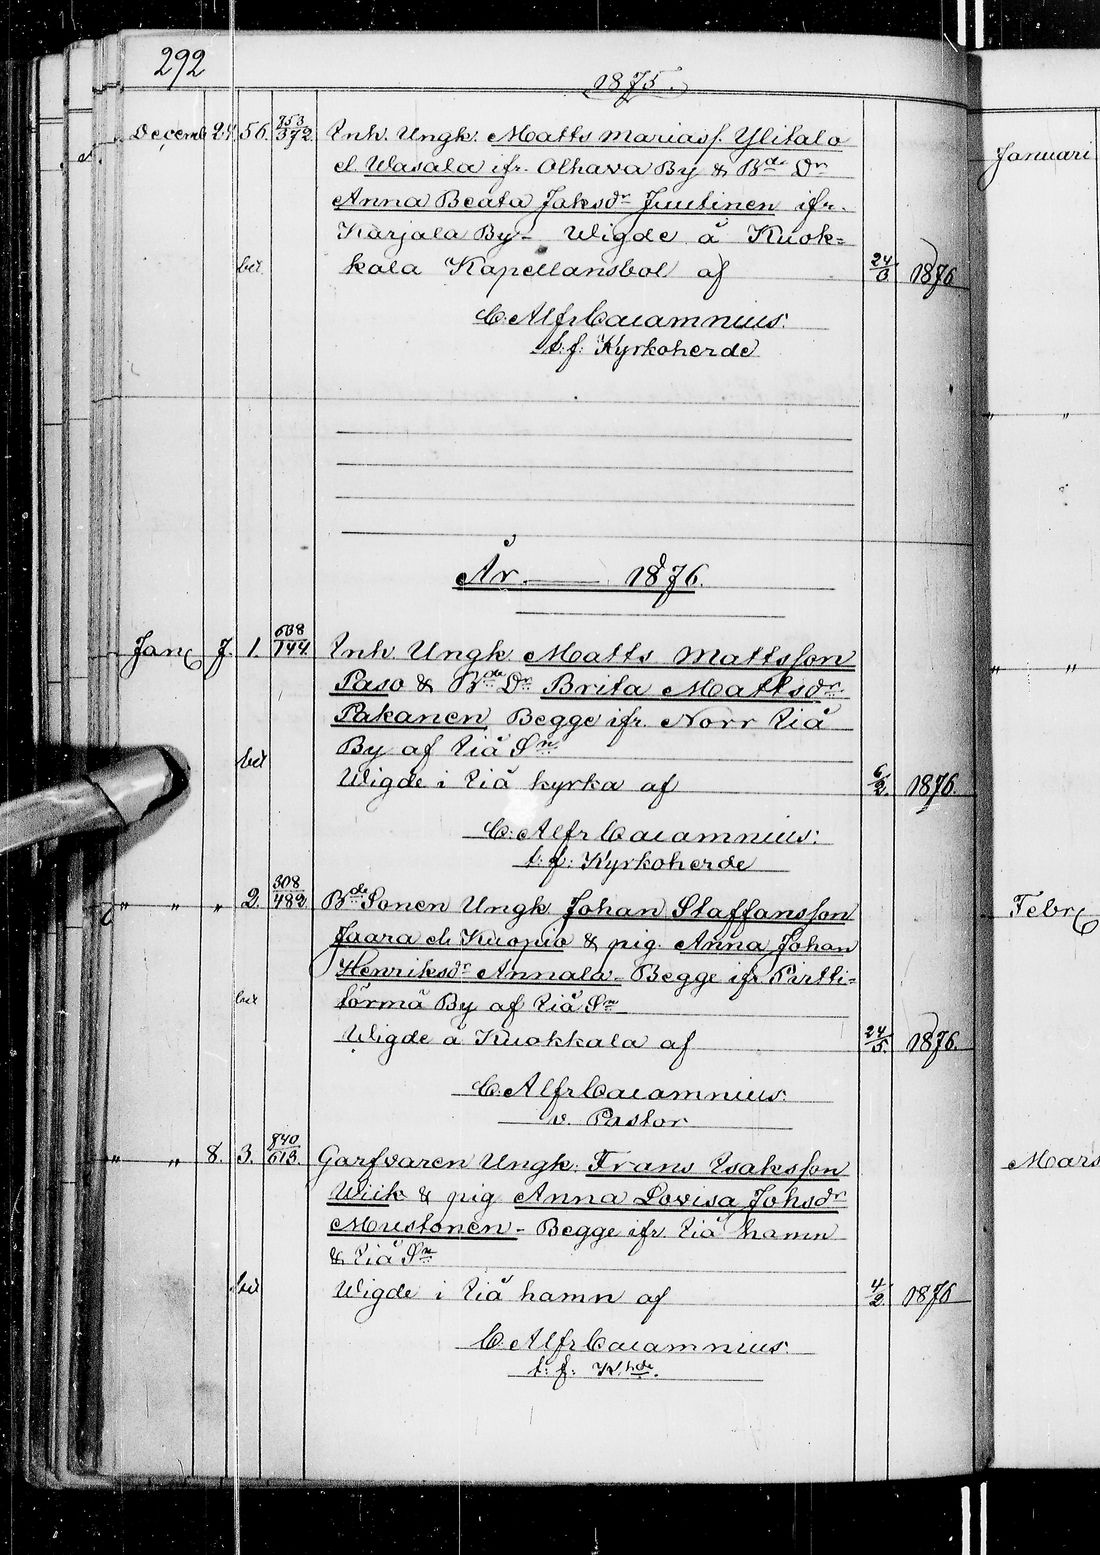 292
1875.
Decemb 24. 56. 753/372. Inh. Ungk. Matts Mariasf. Ylitalo
el. Wasala ifr. Olhava By & Bde Dr
Anna Beata Jaksdr Juutinen ifr.
Karjala By - Wigde å Kuok-
bet kala Kapellansbol af 24/3 1876
C. Alfr Caiamnius.
t: f: Kyrkoherde
År 1876.
Jan 7. 1. 608/144. Inh. Ungk. Matts Mattsson
Paso & Bde Dr Brita Mattsdr
Pakanen Begge ifr. Norr Iiå
By af Iiå Sn
bet Wigde i Iiå kyrka af 6/2. 1876.
C: Alfr Caiamnius:
t: f: Kyrkoherde
" " " 2. 308/482. Bde Sonen Ungk Johan Staffansson
Jaara el. Kuopio & pig. Anna Johan
Henriksdr Annala - Begge ifr Pirtti-
bet törmä By af Iiå Sn
Wigde å Kuokkala af 24/5. 1876.
C. Alfr Caiamnius.
v. Pastor
" " 8. 3. 840/613. Garfvaren Ungk. Frans Isaksson
Wiik & pig Anna Lovisa Johsdr
Mustonen - Begge ifr. Iiå hamn
& Iiå Sn
bet Wigde i Iiå hamn af 4/2 1876
C. Alfr Caiamnius.
t: f: K.hde.
Januari
" "
" "
Febr
Mars